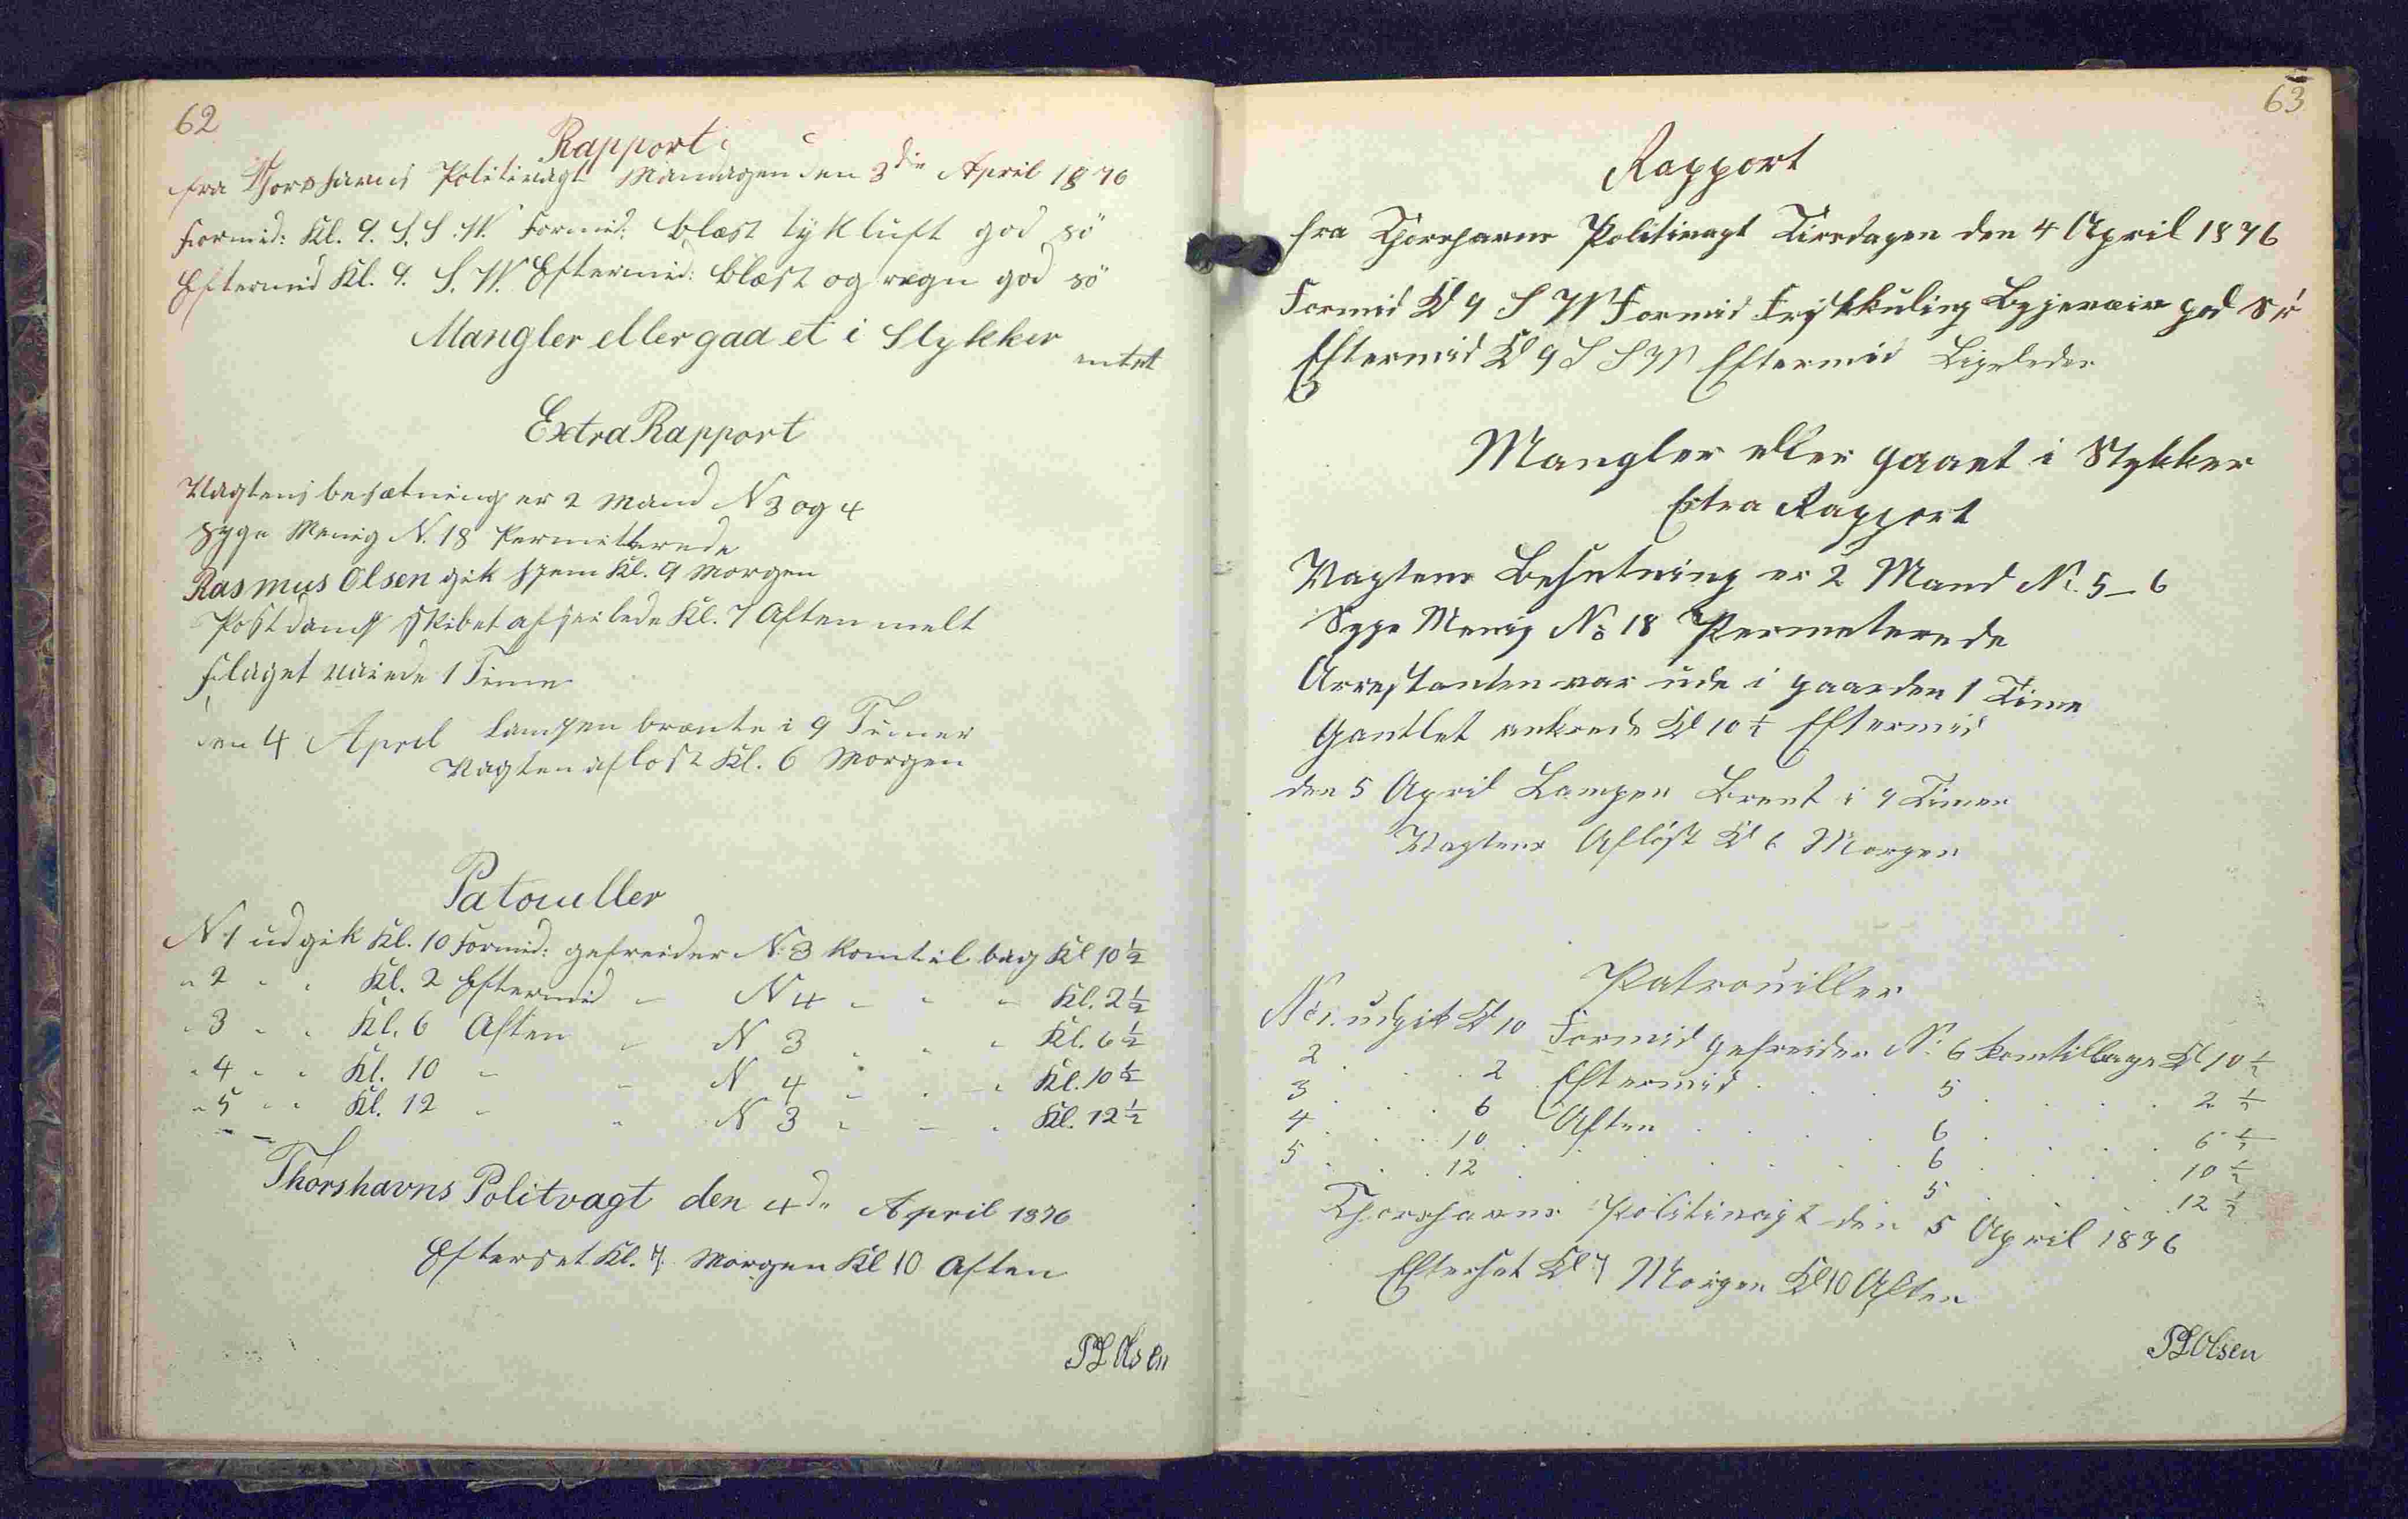 62
Rapport
fra Thorshavns Politivagt Mandagen den 3die April 1876
Formid: Kl. 9. S. S. W. Formid: blæst tykluft god sö
Eftermid Kl. 9. S. W. Eftermid: blæst og regn god sö
Mangler eller gaaet i Stykker
intet
Extra Rapport
Vagtens besætning er 2 Mand N 3 og 4
Syge Menig N. 18 Permitterede
Rasmus Olsen gik hjem Kl. 9 Morgen
Postdampskibet afseilede Kl. 7 Aften
Flaget vaiede 1 Time
den 4 April Lampen brænte i 9 Timer
Vagten aflöst Kl. 6 Morgen
Patouller
N 1 udgik Kl. 10 Formid: gefreider N. 3 kom til bag Kl 10 ½
" 2 " " Kl. 2 Eftermid " N 4 " " " Kl. 2 ½
" 3 " " Kl. 6 Aften " N 3 " " " Kl. 6 ½
" 4 " " Kl. 10 " " N 4 " " " Kl. 10 ½
" 5 " " Kl. 12 " " N 3 " " " Kl. 12 ½
Thorshavns Politvagt den 4de April 1876
Efterset Kl. 7 Morgen Kl 10 Aften
Olsen
63
Rapport
fra Thorshavns Politivagt Tirsdagen den 4 April 1876
Formid Kl 9 S W Formid Friskkuling Byjevair god Sö
Eftermid Kl 9 S S W Eftermid Ligeledes
Mangler eller gaaet i Stykker
Extra Rapport
Vagtens Besetning er 2 Mand No. 5 – 6
Syge Menig No 18 Permeterede
Arrestanten var ude i gaarden 1 Time
Gantlet ankrede Kl 10 ½ Eftermid
den 5 April Lampen Brent i 9 Timer
Vagtens Aflöst Kl 6 Morgen
Patrouiller
No 1. udgik Kl 10 Formid gefreider No. 6 kom tilbage Kl 10 ½
2 . . . 2 Eftermid . . 5 . . . . 2 ½
3 . . . 6 Aften . . . 6 . . . . 6 ½
4 . . . 10 . . . . . 6 . . . . 10 ½
5 . . . 12 . . . . . 5 . . . . 12 ½
Thorshavns Politivagt den 5 April 1876
Efterset Kl 7 Morgen Kl 10 Aften
Olsen